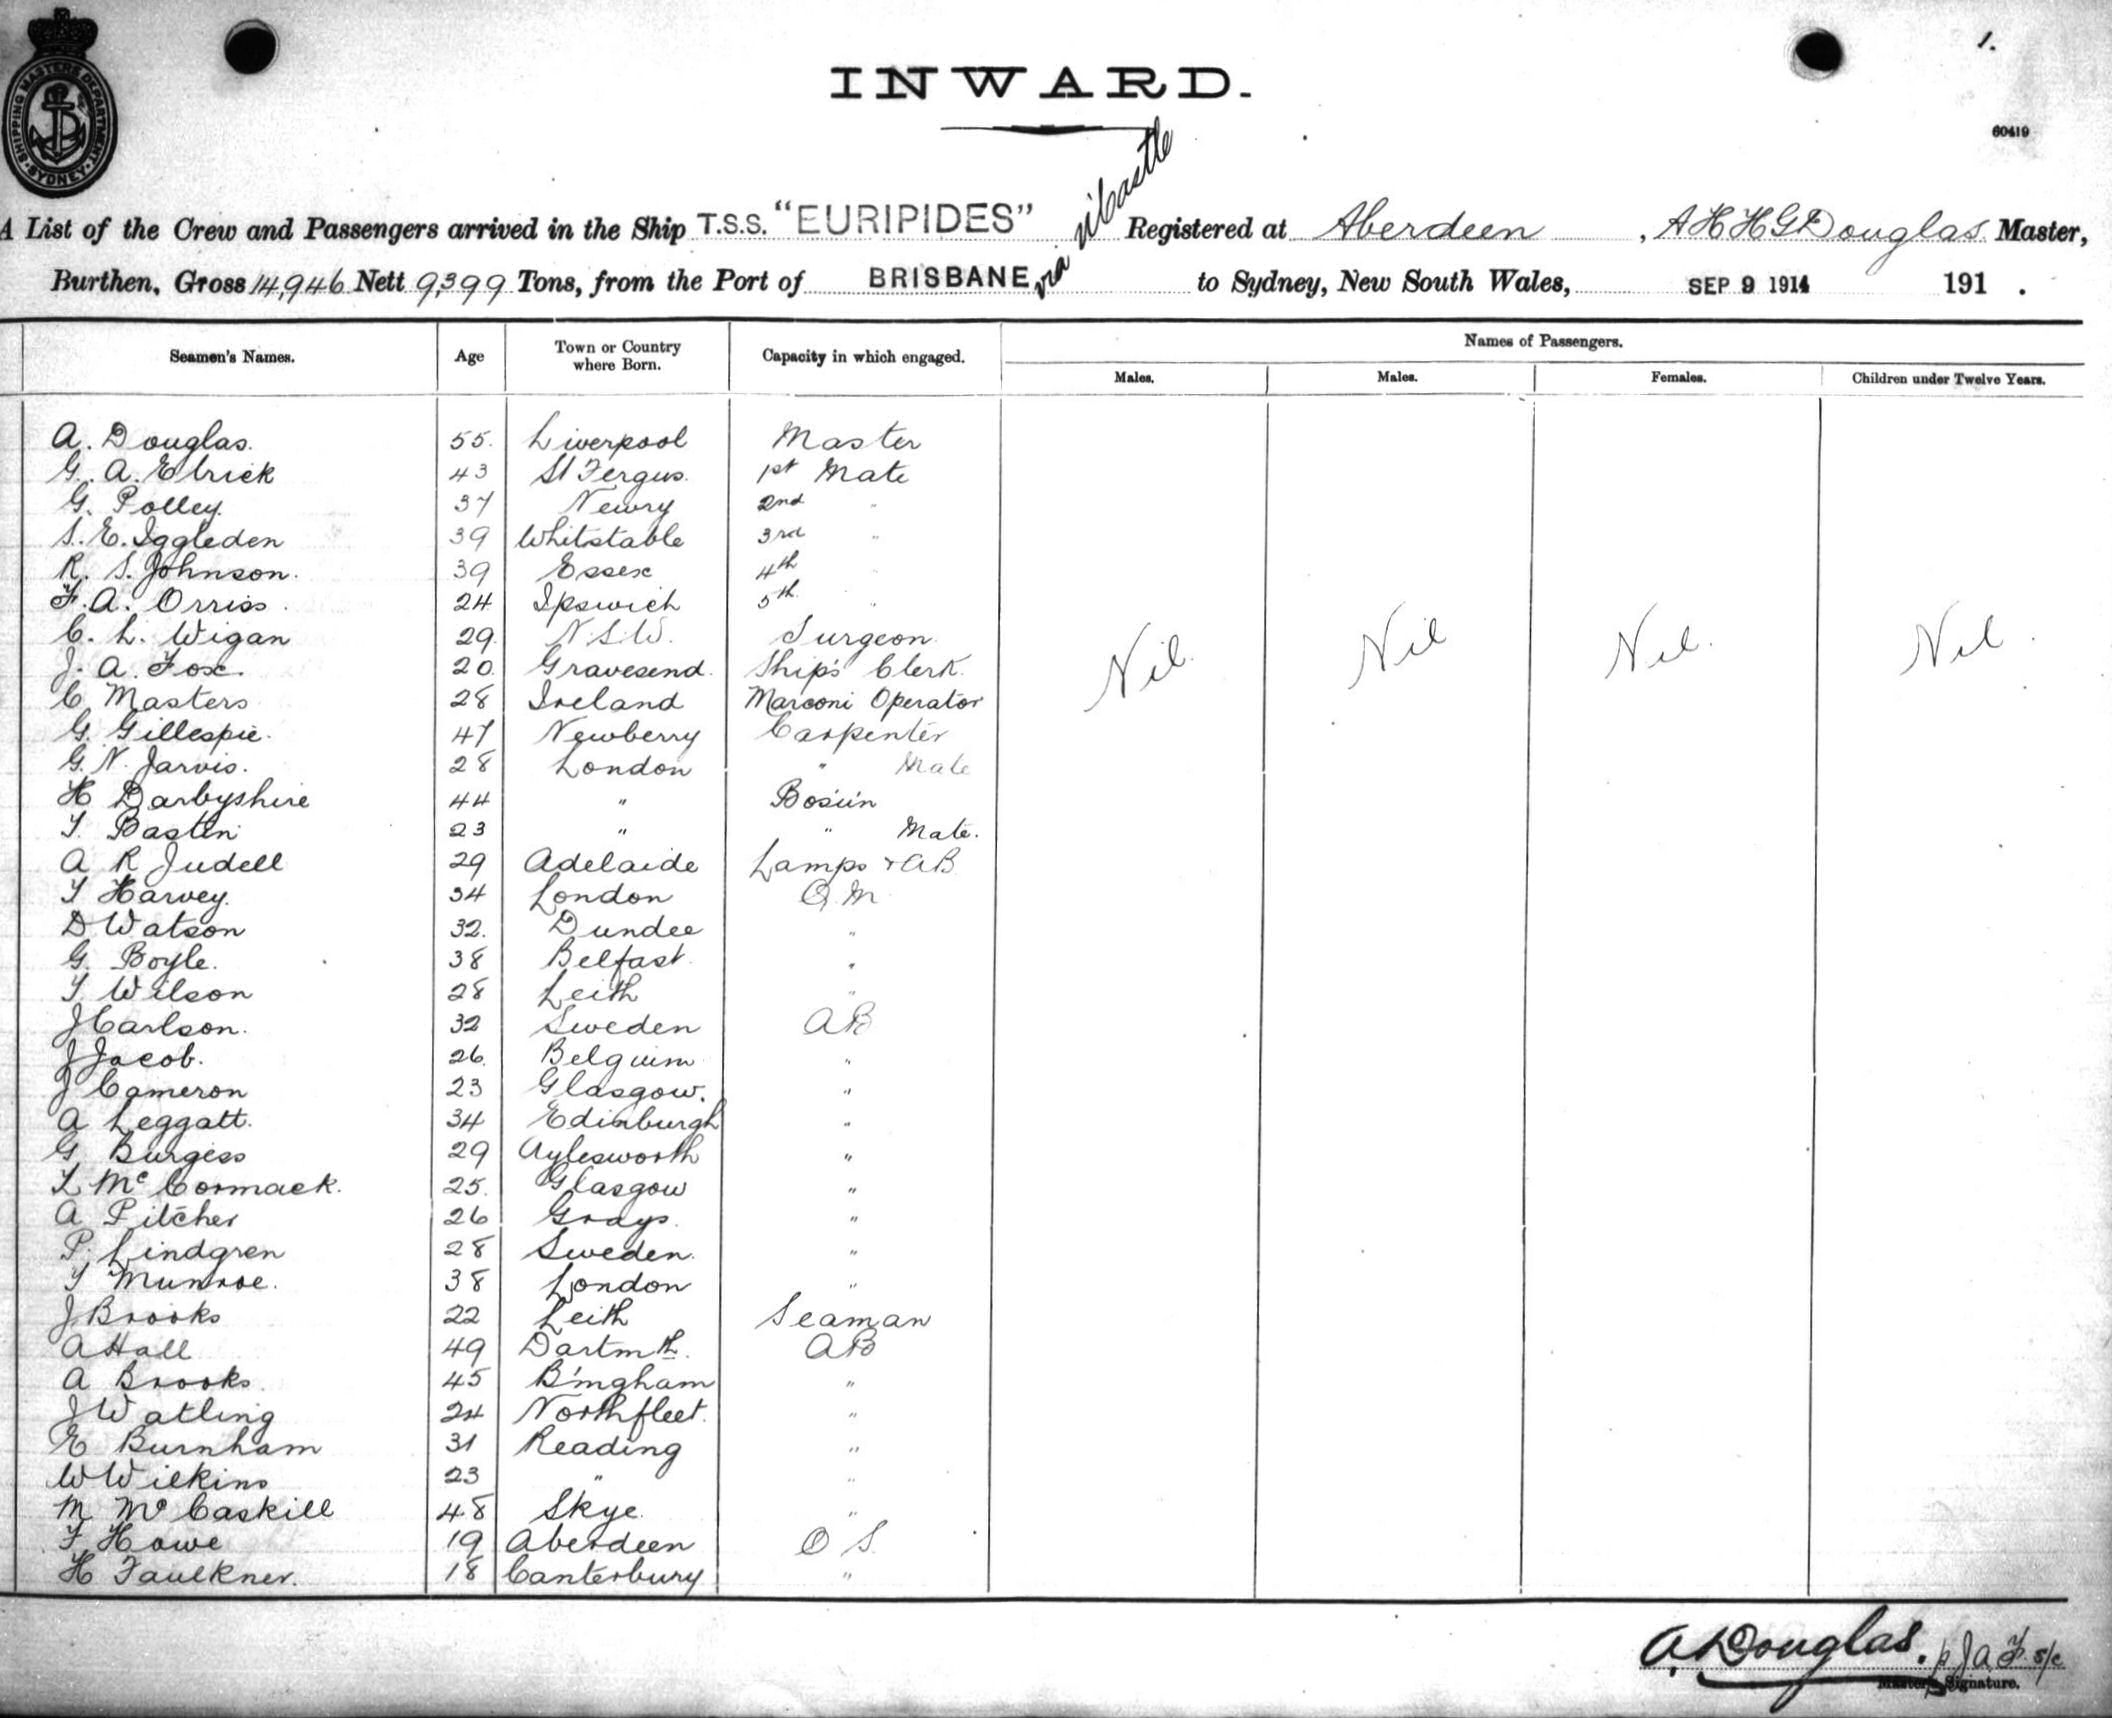 1.
INWARD.
60419
SHIPPING MASTERS DEPARTMENT SYDNEY
A List of the Crew and Passengers arrived in the Ship T.S.S. "EURIPIDES" Registered at Aberdeen, A H H G Douglas Master,
Burthen, Gross 14,946 Nett 9,399 Tons, from the Port of BRISBANE via N'Castle to Sydney, New South Wales, SEP 9 1914 191 .
Seamen's Names. Age Town or Country where Born. Capacity in which engaged. Names of Passengers.
Males. Males. Females. Children under Twelve Years.
A. Douglas. 55. Liverpool Master
G. A. Etrick 43 St Fergus. 1st Mate
G. Polley. 37 Newry 2nd "
S. E. Iggleden 39 Whitstable 3rd "
R. S. Johnson. 39 Essex 4th
F. A. Orriss. 24 Ipswich 5th "
C. L. Wigan 29. N.S.W. Surgeon Nil. Nil Nil. Nil.
J. A. Fox. 20. Gravesend. Ship's Clerk.
C Masters 28 Ireland Marconi Operator
G. Gillespie. 47 Newberry Carpenter
G. N. Jarvis. 28 London " Mate
H Darbyshire 44 " Bosun
T. Bastin 23 " " Mate.
A R Judell 29 Adelaide Lamps + AB
T Harvey. 34 London Q M
D Watson 32. Dundee "
G. Boyle. 38 Belfast "
T Wilson 28 Leith "
J Carlson. 32 Sweden AB
J Jacob. 26. Belguim "
J Cameron 23 Glasgow. "
A Leggatt. 34 Edinburgh "
G Burgess 29 Aylesworth "
T McCormack. 25. Glasgow "
A Pitcher 26 Grays. "
P. Lindgren 28 Sweden. "
T Munroe. 38 London "
J Brooks 22 Leith Seaman
A Hall 49 Dartmth. AB
A Brooks 45 B'mgham "
J Watling 24 Northfleet. "
E Burnham 31 Reading "
W Wilkins 23 " "
M McCaskill 48 Skye. "
F Howe 19 Aberdeen O S.
H Faulkner. 18 Canterbury "
A. Douglas. p J.A.F. s/c
Master's Signature.